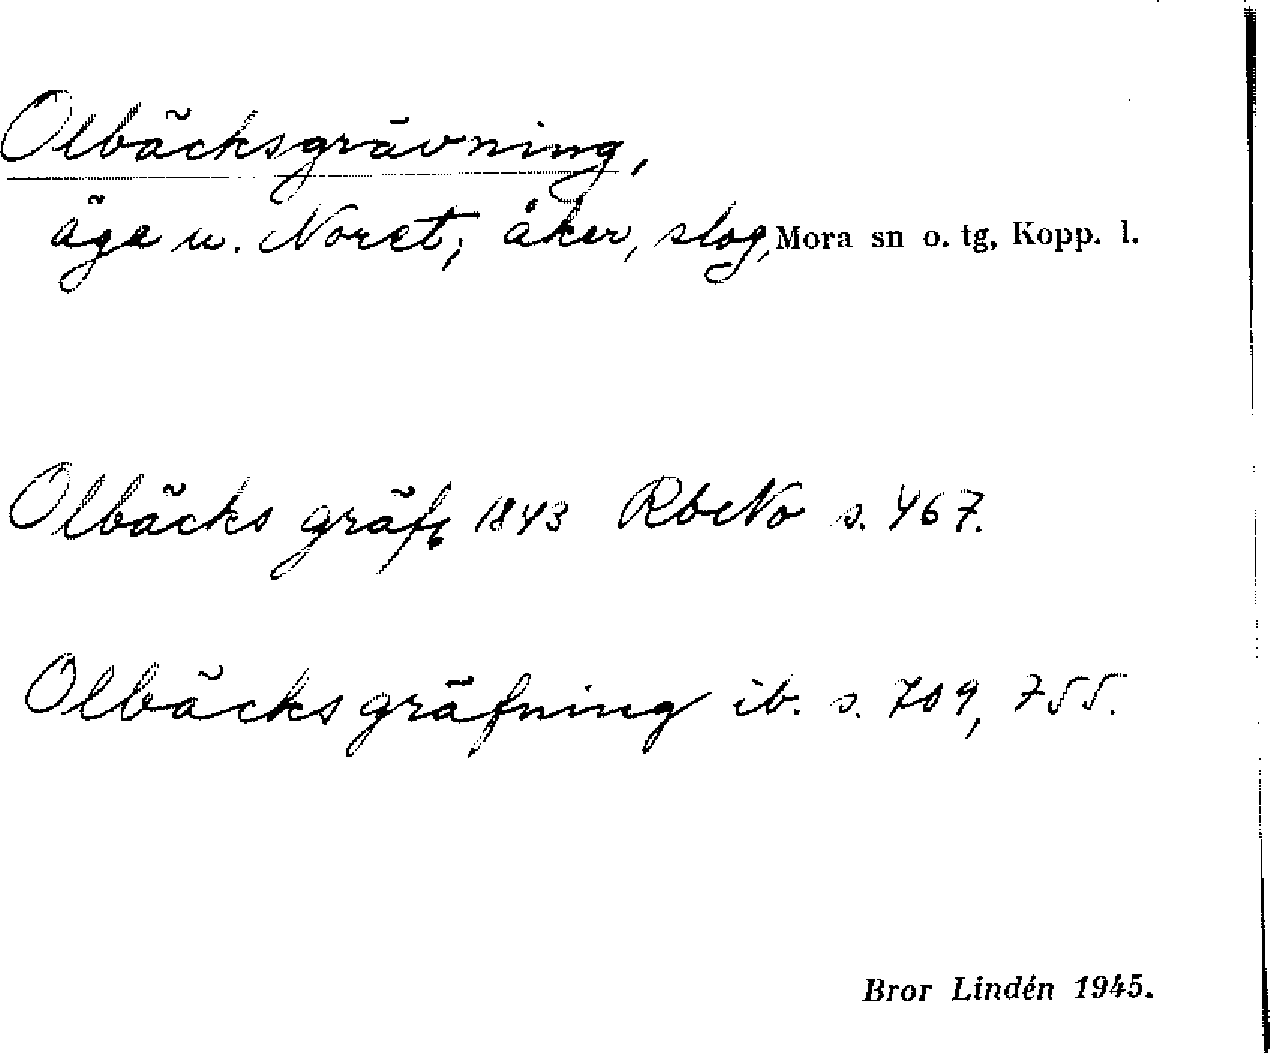 Olbäcksgrävning,
äga u. Noret; åker, slog, Mora sn o. tg, Kopp. l.
Olbäcks gräfn 1843 RbNo s. 467.
Olbäcksgräfning ib. s. 709, 755.
Bror Lindén 1945.